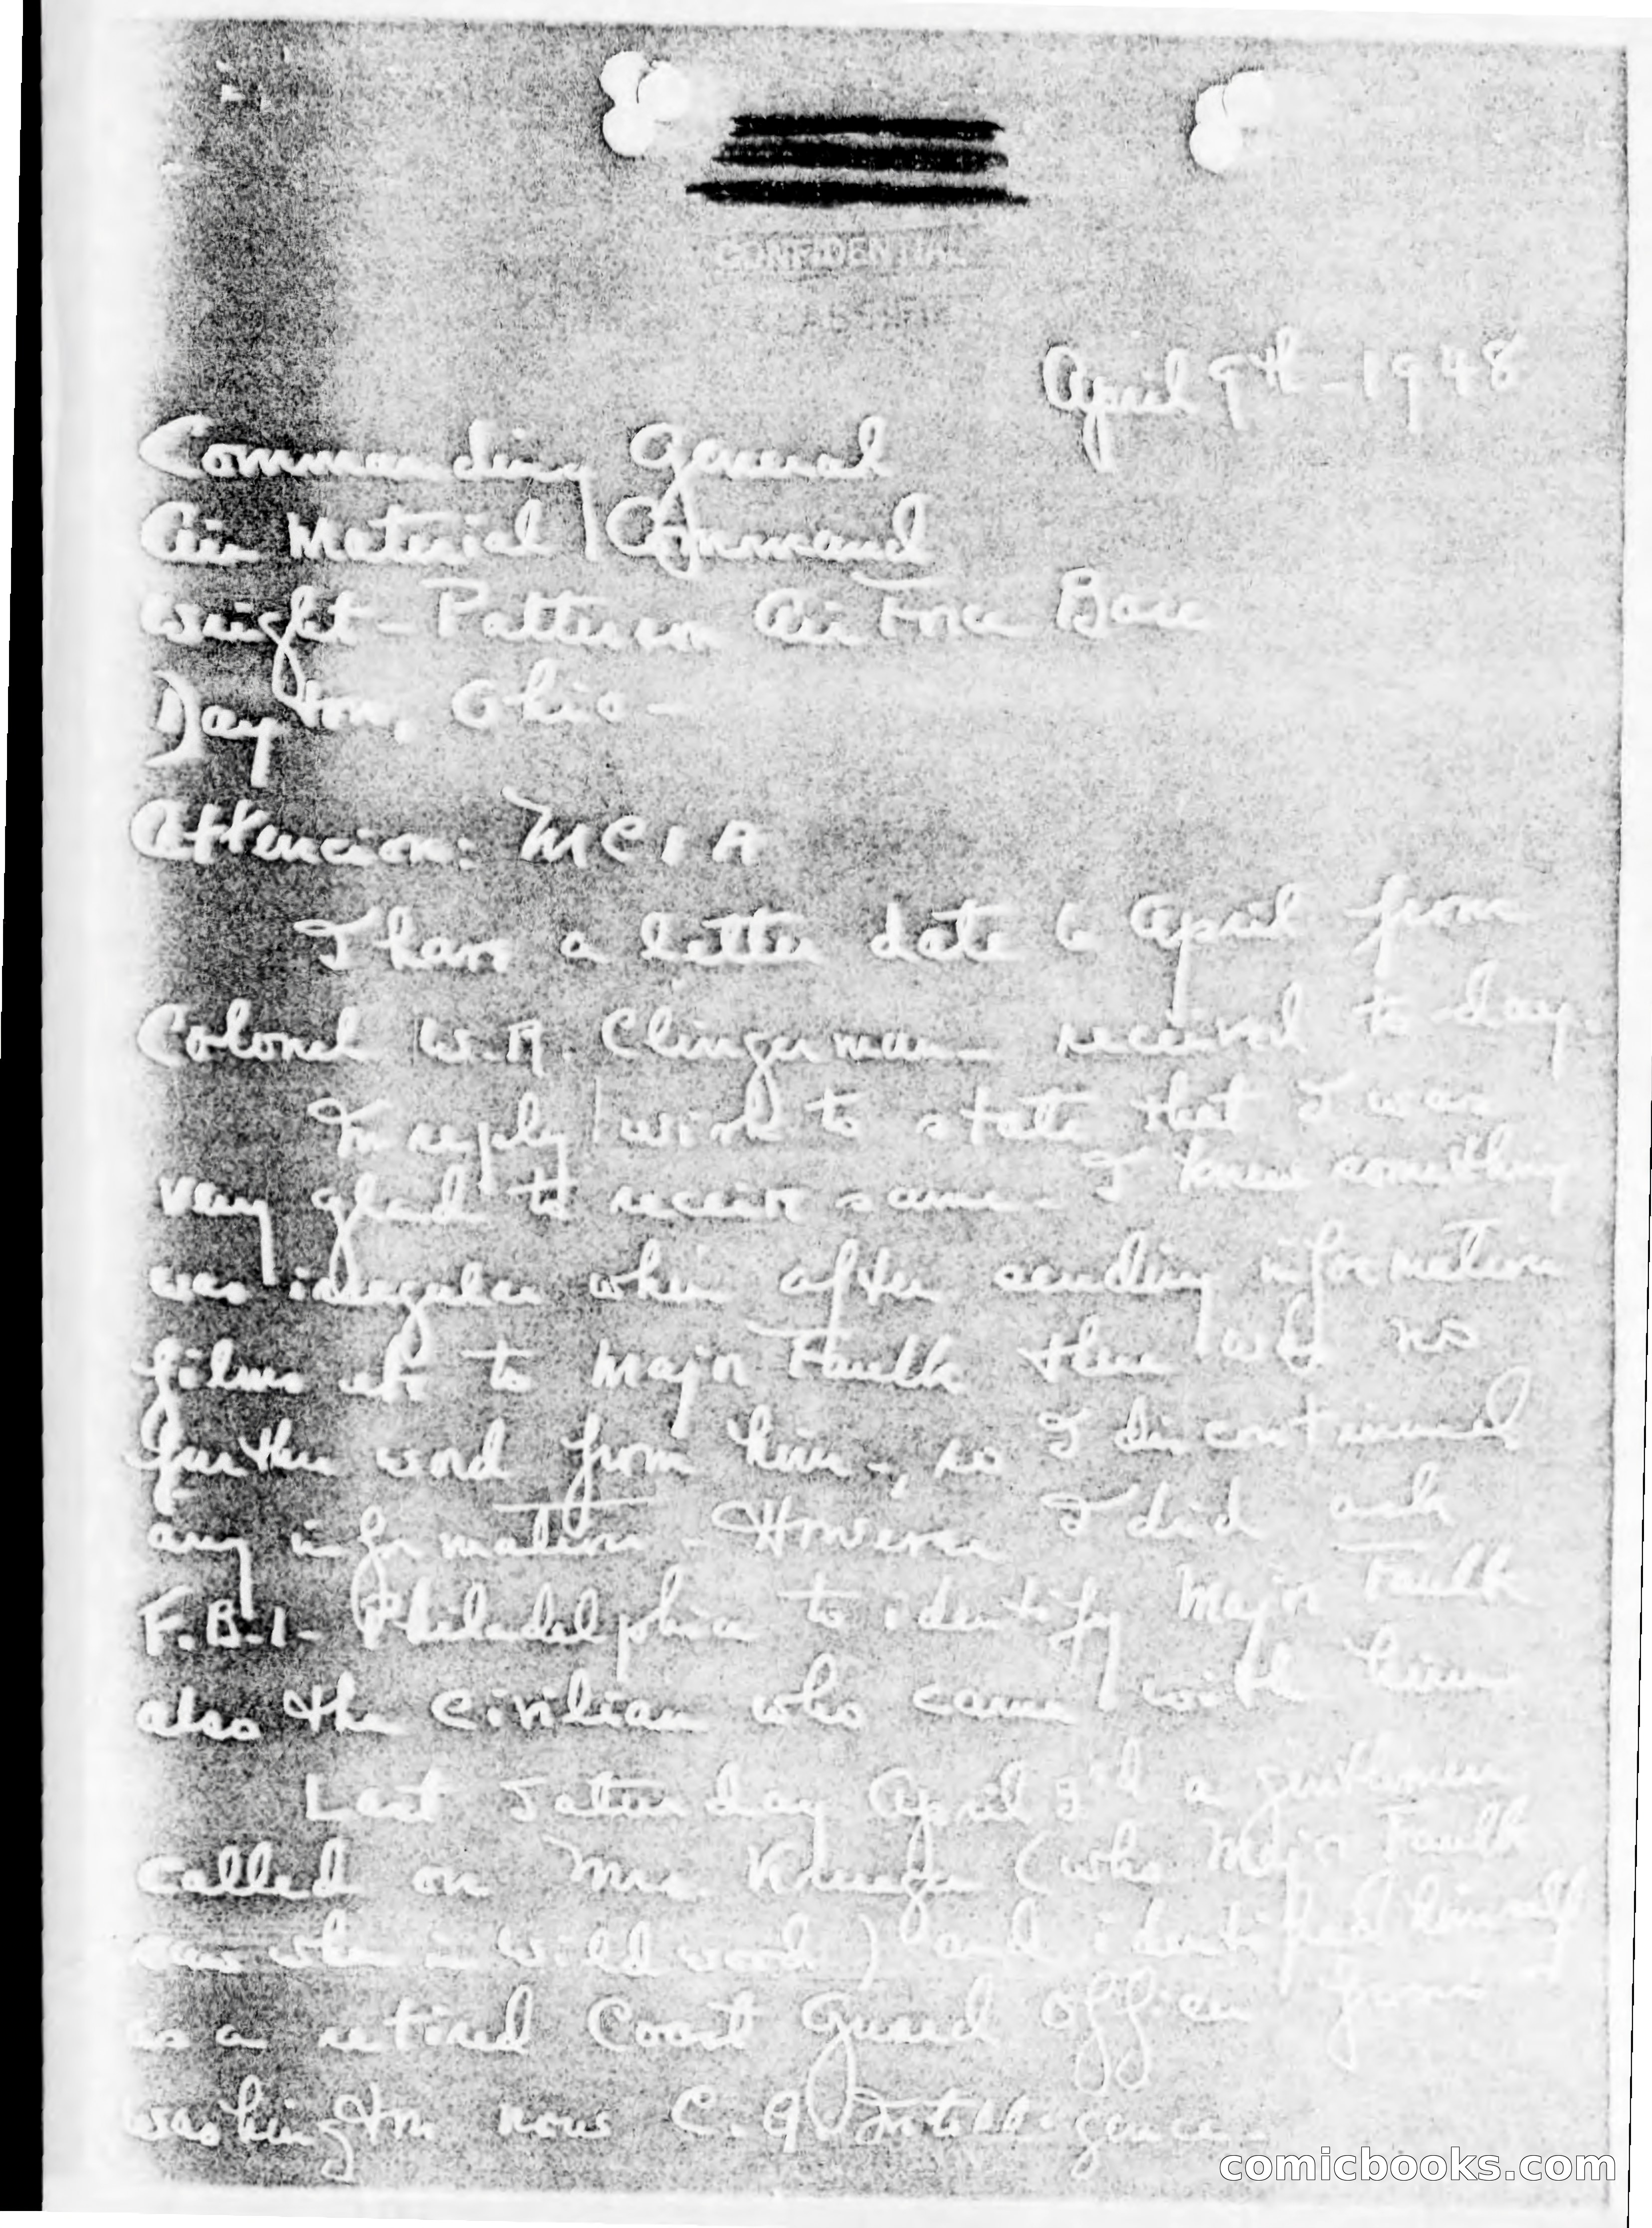 CONFIDENTIAL
April 9th - 1948
Commanding General
Air Material Command
Wright-Patterson Air Force Base
Dayton, Ohio -
Attencion: MCIA
I have a letter date 6 April from
Colonel W.R. Clingerman received to day.
In reply I wish to state that I was
very glad to receive same - I knew something
was irregular when after sending information
films etc to Major Faulk there was no
further word from him -, so I discontinued
any information - However I did ask
F.B.I - Philadelphia to identify Major Faulk
also the civilian who came with him
Last Saturday April 3rd a gentleman
called on Mrs (who Major Faulk
saw when in Wildwood) and identified himself
as a retired Coast Guard Officer from
Washington now C.G. Intelligence -
comicbooks.com